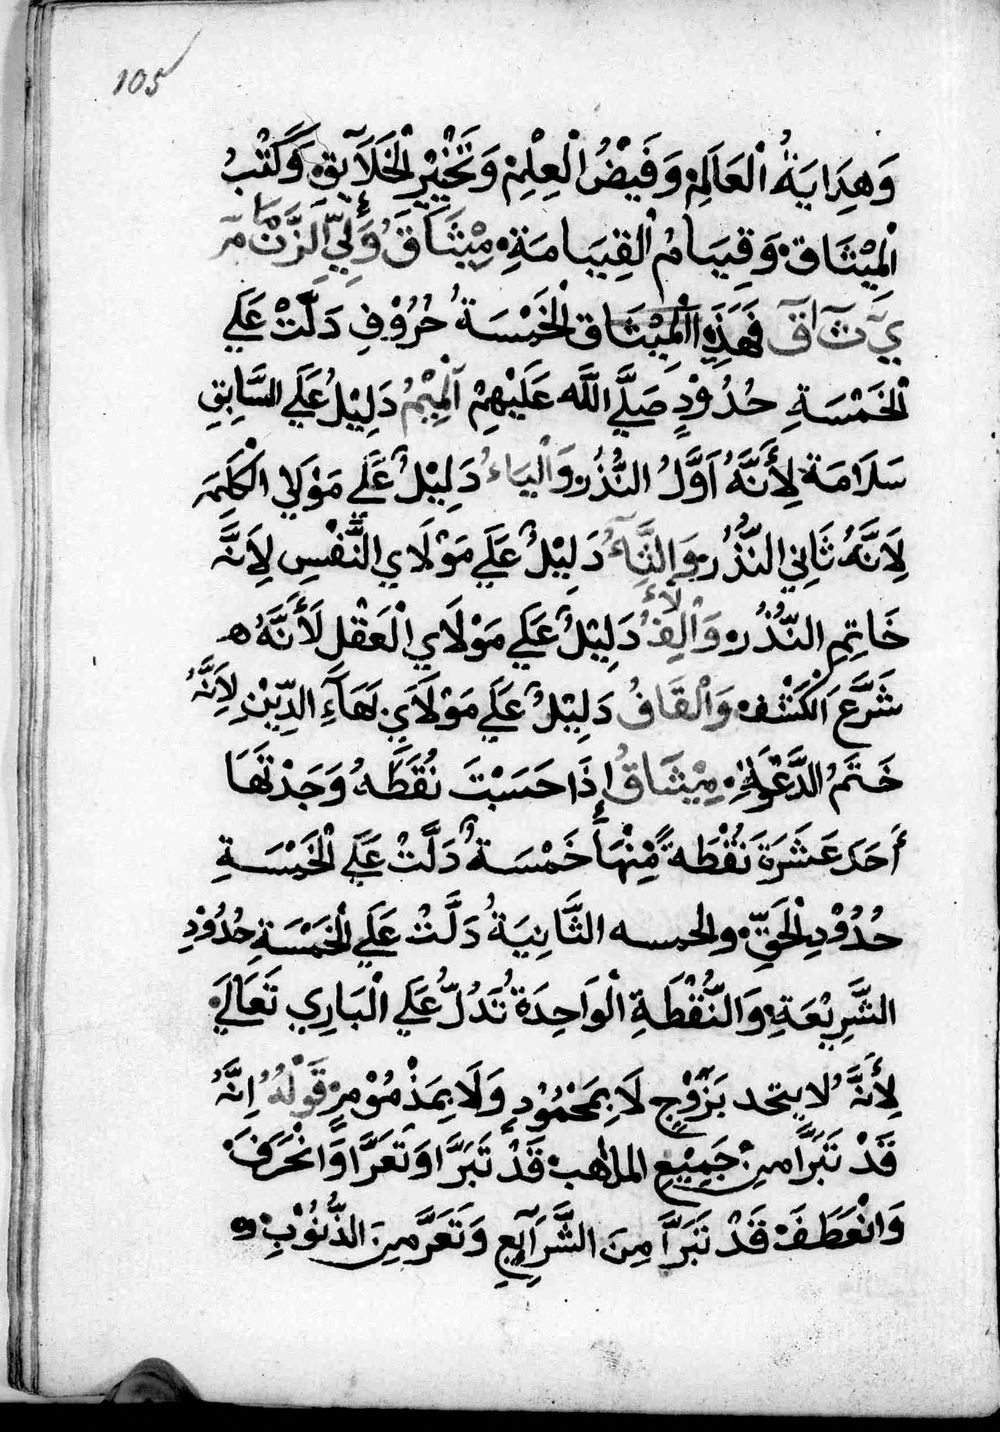 105
وَهِدَايَةُ الْعَالَمِ وَفَيْضُ الْعِلْمِ وَتَخْيِيْرِ الْخَلَايِقِ وَكَتْبُ
الْمِيْثَاقْ وَقِيَامُ الْقِيَامَةِ مِيْثَاقَ وَلِيِّ الزَّمَانْ مّ
يَ ثَ اقّ فَهَذِهِ الْمِيْثَاقِ الْخَمْسَةُ حُرُوْفِ دَلَّتْ عَلَي
الْخَمْسَةِ حُدُوْدٍ صَلَّي اللَّه عَلَيْهِمْ اَلْمِيْمُ دَلِيْلُ عَلَي السَّابِقِ
سَلَامَة لِأَنَّهُ اَوَّلُ النُّذُرْ وَالْيَاءُ دَلِيْلٌ عَلَي مَوْلَاي الْكَلِمَه
لِاَنَّهُ ثَانِي النُّذُرْ وَالثَّاءُ دَلِيْلٌ عَلَي مَوْلَاي النَّفْسِ لِاَنَّهُ
خَاتِمِ النُّذُرْ وَالْاَلِفُ دَلِيْلٌ عَلَي مَوْلَاي الْعَقْلِ لَأَنَّهُ ه
شَرَّعَ الْكَشْفْ وَالْقَافُ دَلِيْلٌ عَلَي مَوْلَايَ بَهَآءِ الدِّيْنِ لِاَنَّهُ
خَتَمُ الدَّعْوَةِ مِيْثَاقُ إِذَا حَسَبْتَ نُقَطَهُ وَجَدْتَهَا
أَحَدَ عَشَرَةَ نُقْطَه مِّنْهَا خَمْسَةٌ دَلَّتْ عَلَي الْخَمْسَةِ
حُدُوْدِ الْحَقِّ والخمسه الثَّانِيَةُ دَلَّتْ عَلَي الْخَمْسَةِ حُدُوْدِ
الشَّرِيْعَةِ وَالنُّقْطَةِ الْوَاحِدَةُ تُدَلُّ عَلَي الْبَارِي تَعَالَي
لِأَنَّهُ لا يتحد بَزَوْجٍ لَا بِمَحْمُوْدٍ وَلَا بِمَذْمُوْمٍ قَوْلُهُ اِنَّهُ
قَدْ تَبَرَّا مِنْ جَمِيْعِ المذاهب قَدْ تَبَرَّا وَتَعَرَّا وَانْحَرَفَ
وَانْعَطَفَ قَدْ تَبَرَّأَ مِنَ الشَّرَآيِعِ وَتَعَرَّ مِنَ الذُّنُوْبِ و